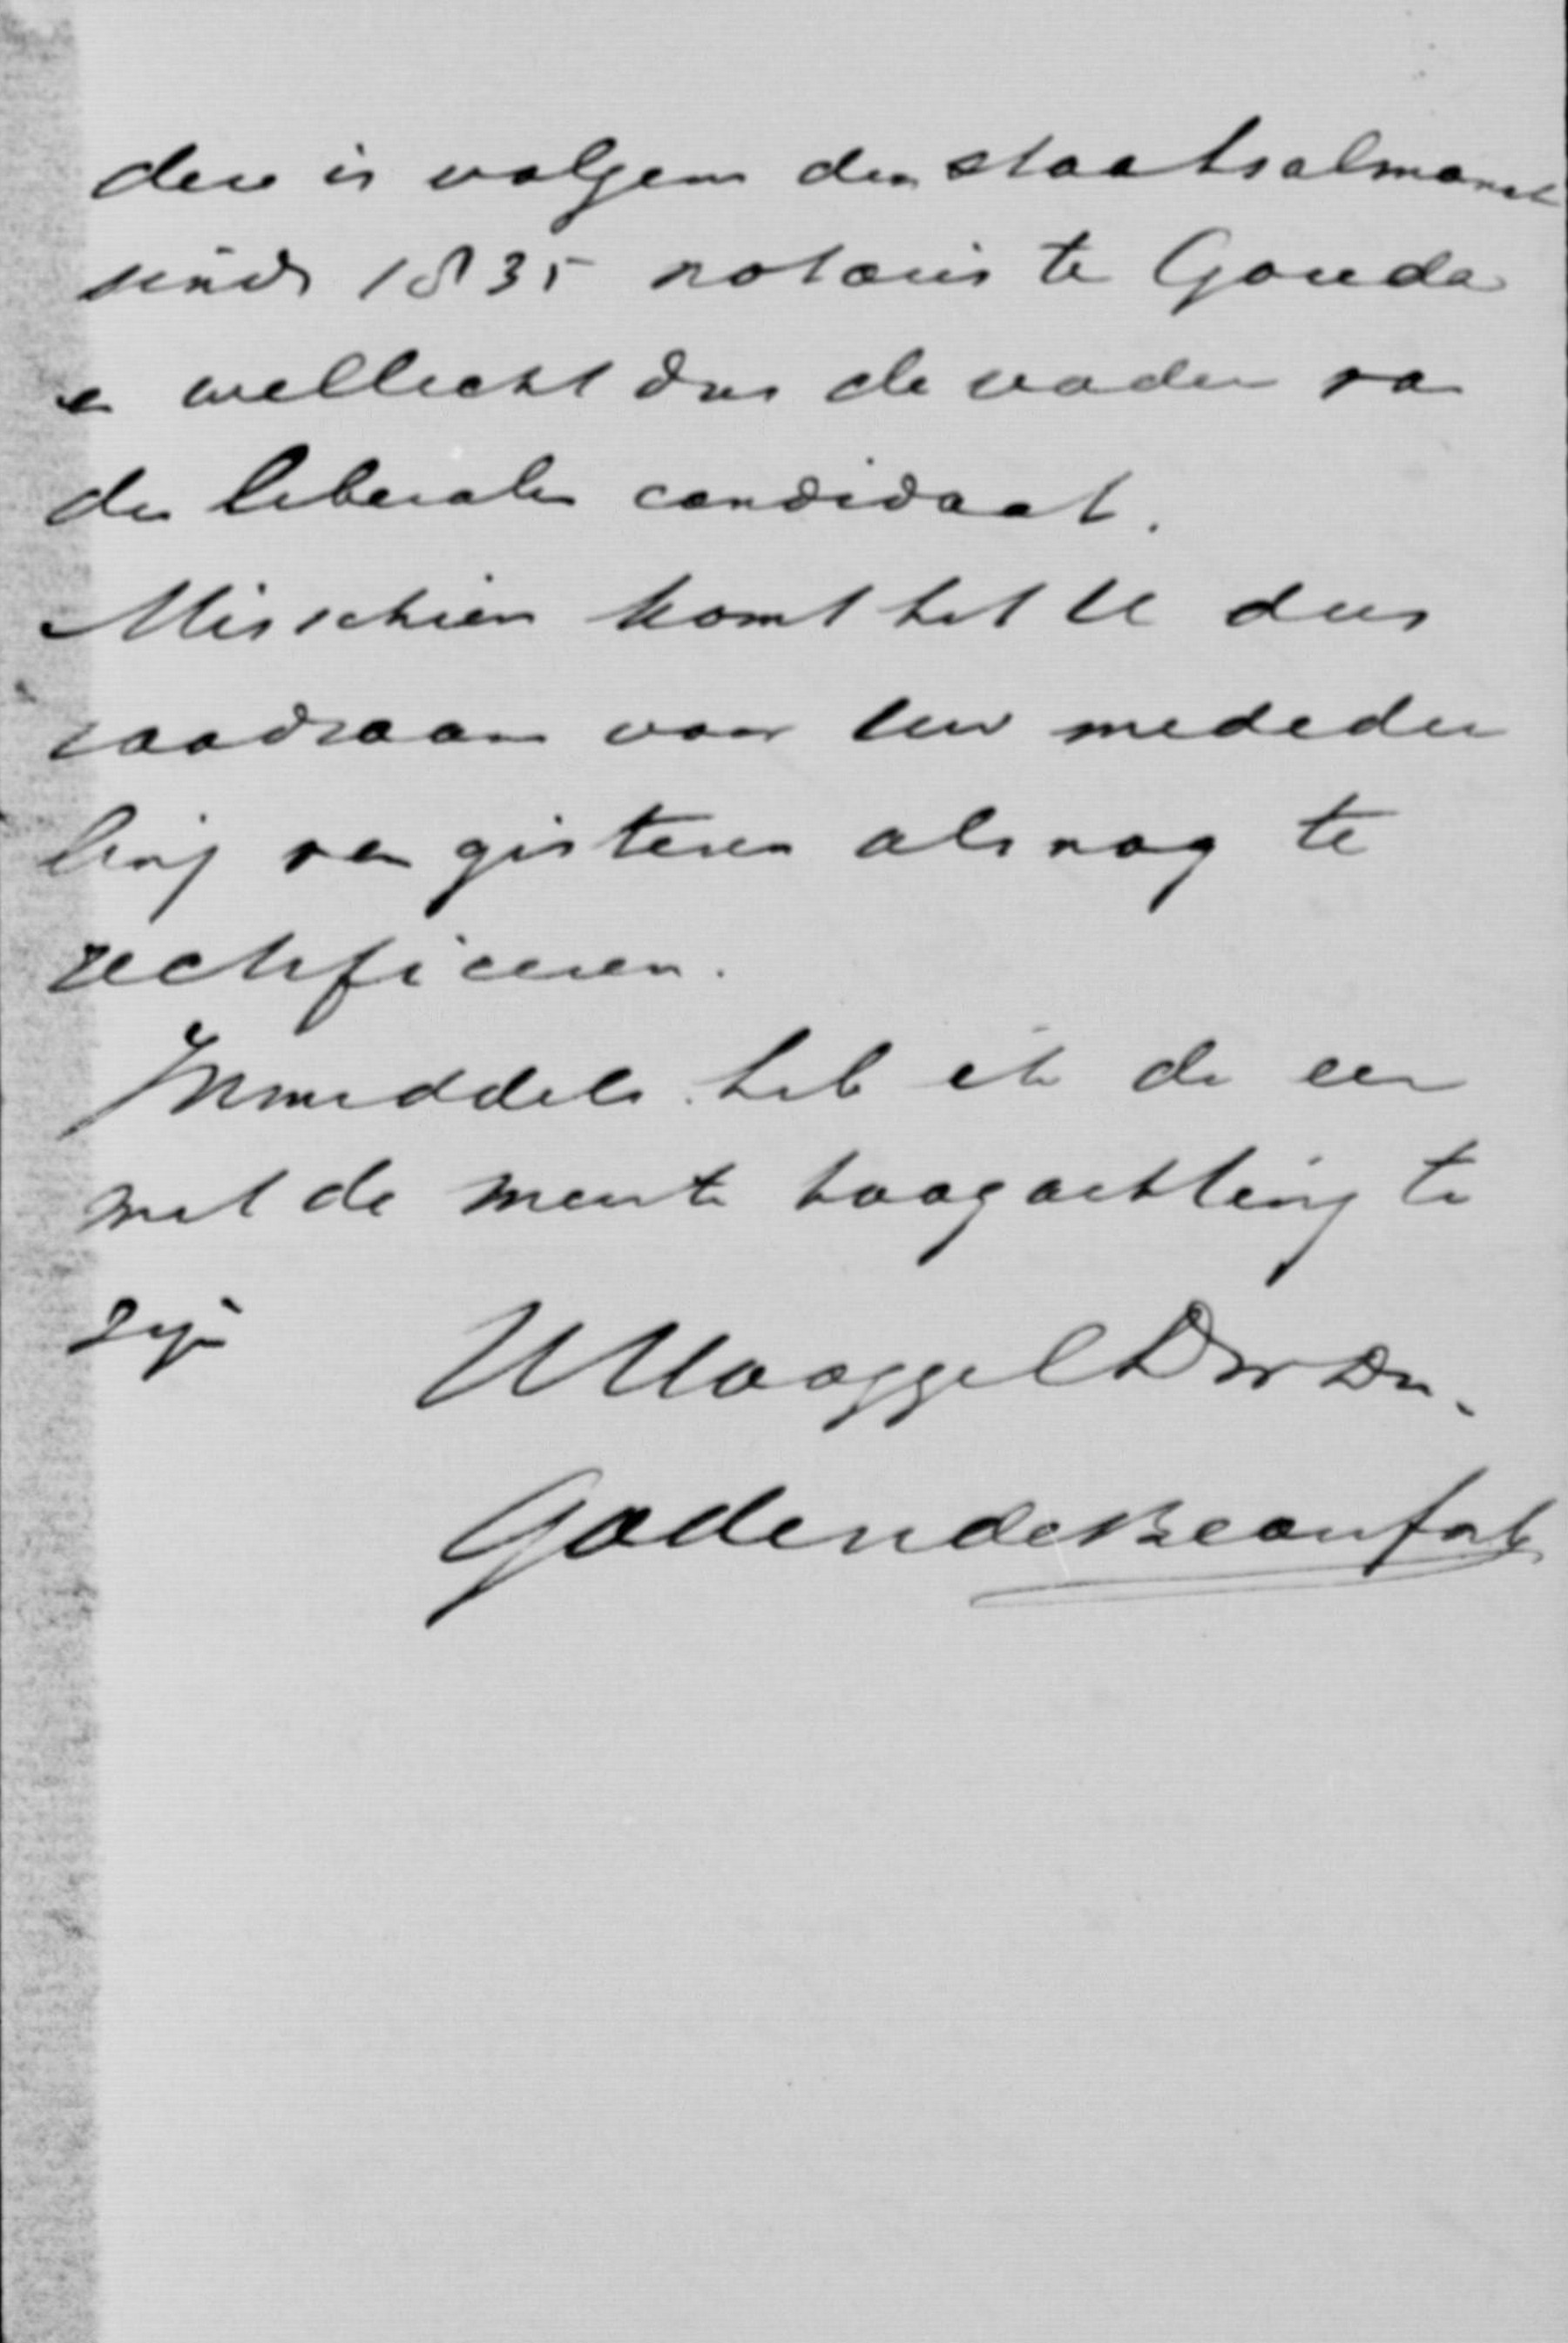 deze is volgens den staatsalmanak
sinds 1835 notaris te Gouda
en wellicht dus de vader van
den liberalen candidaat.
Misschien komt het U dus
raadzaam voor Uw mededee
ling van gisteren alsnog te
rectificeren.
Inmiddels heb ik de eer
met de meeste hoogachting te
zijn
UHooggel Dw Dn.
de Beaufort